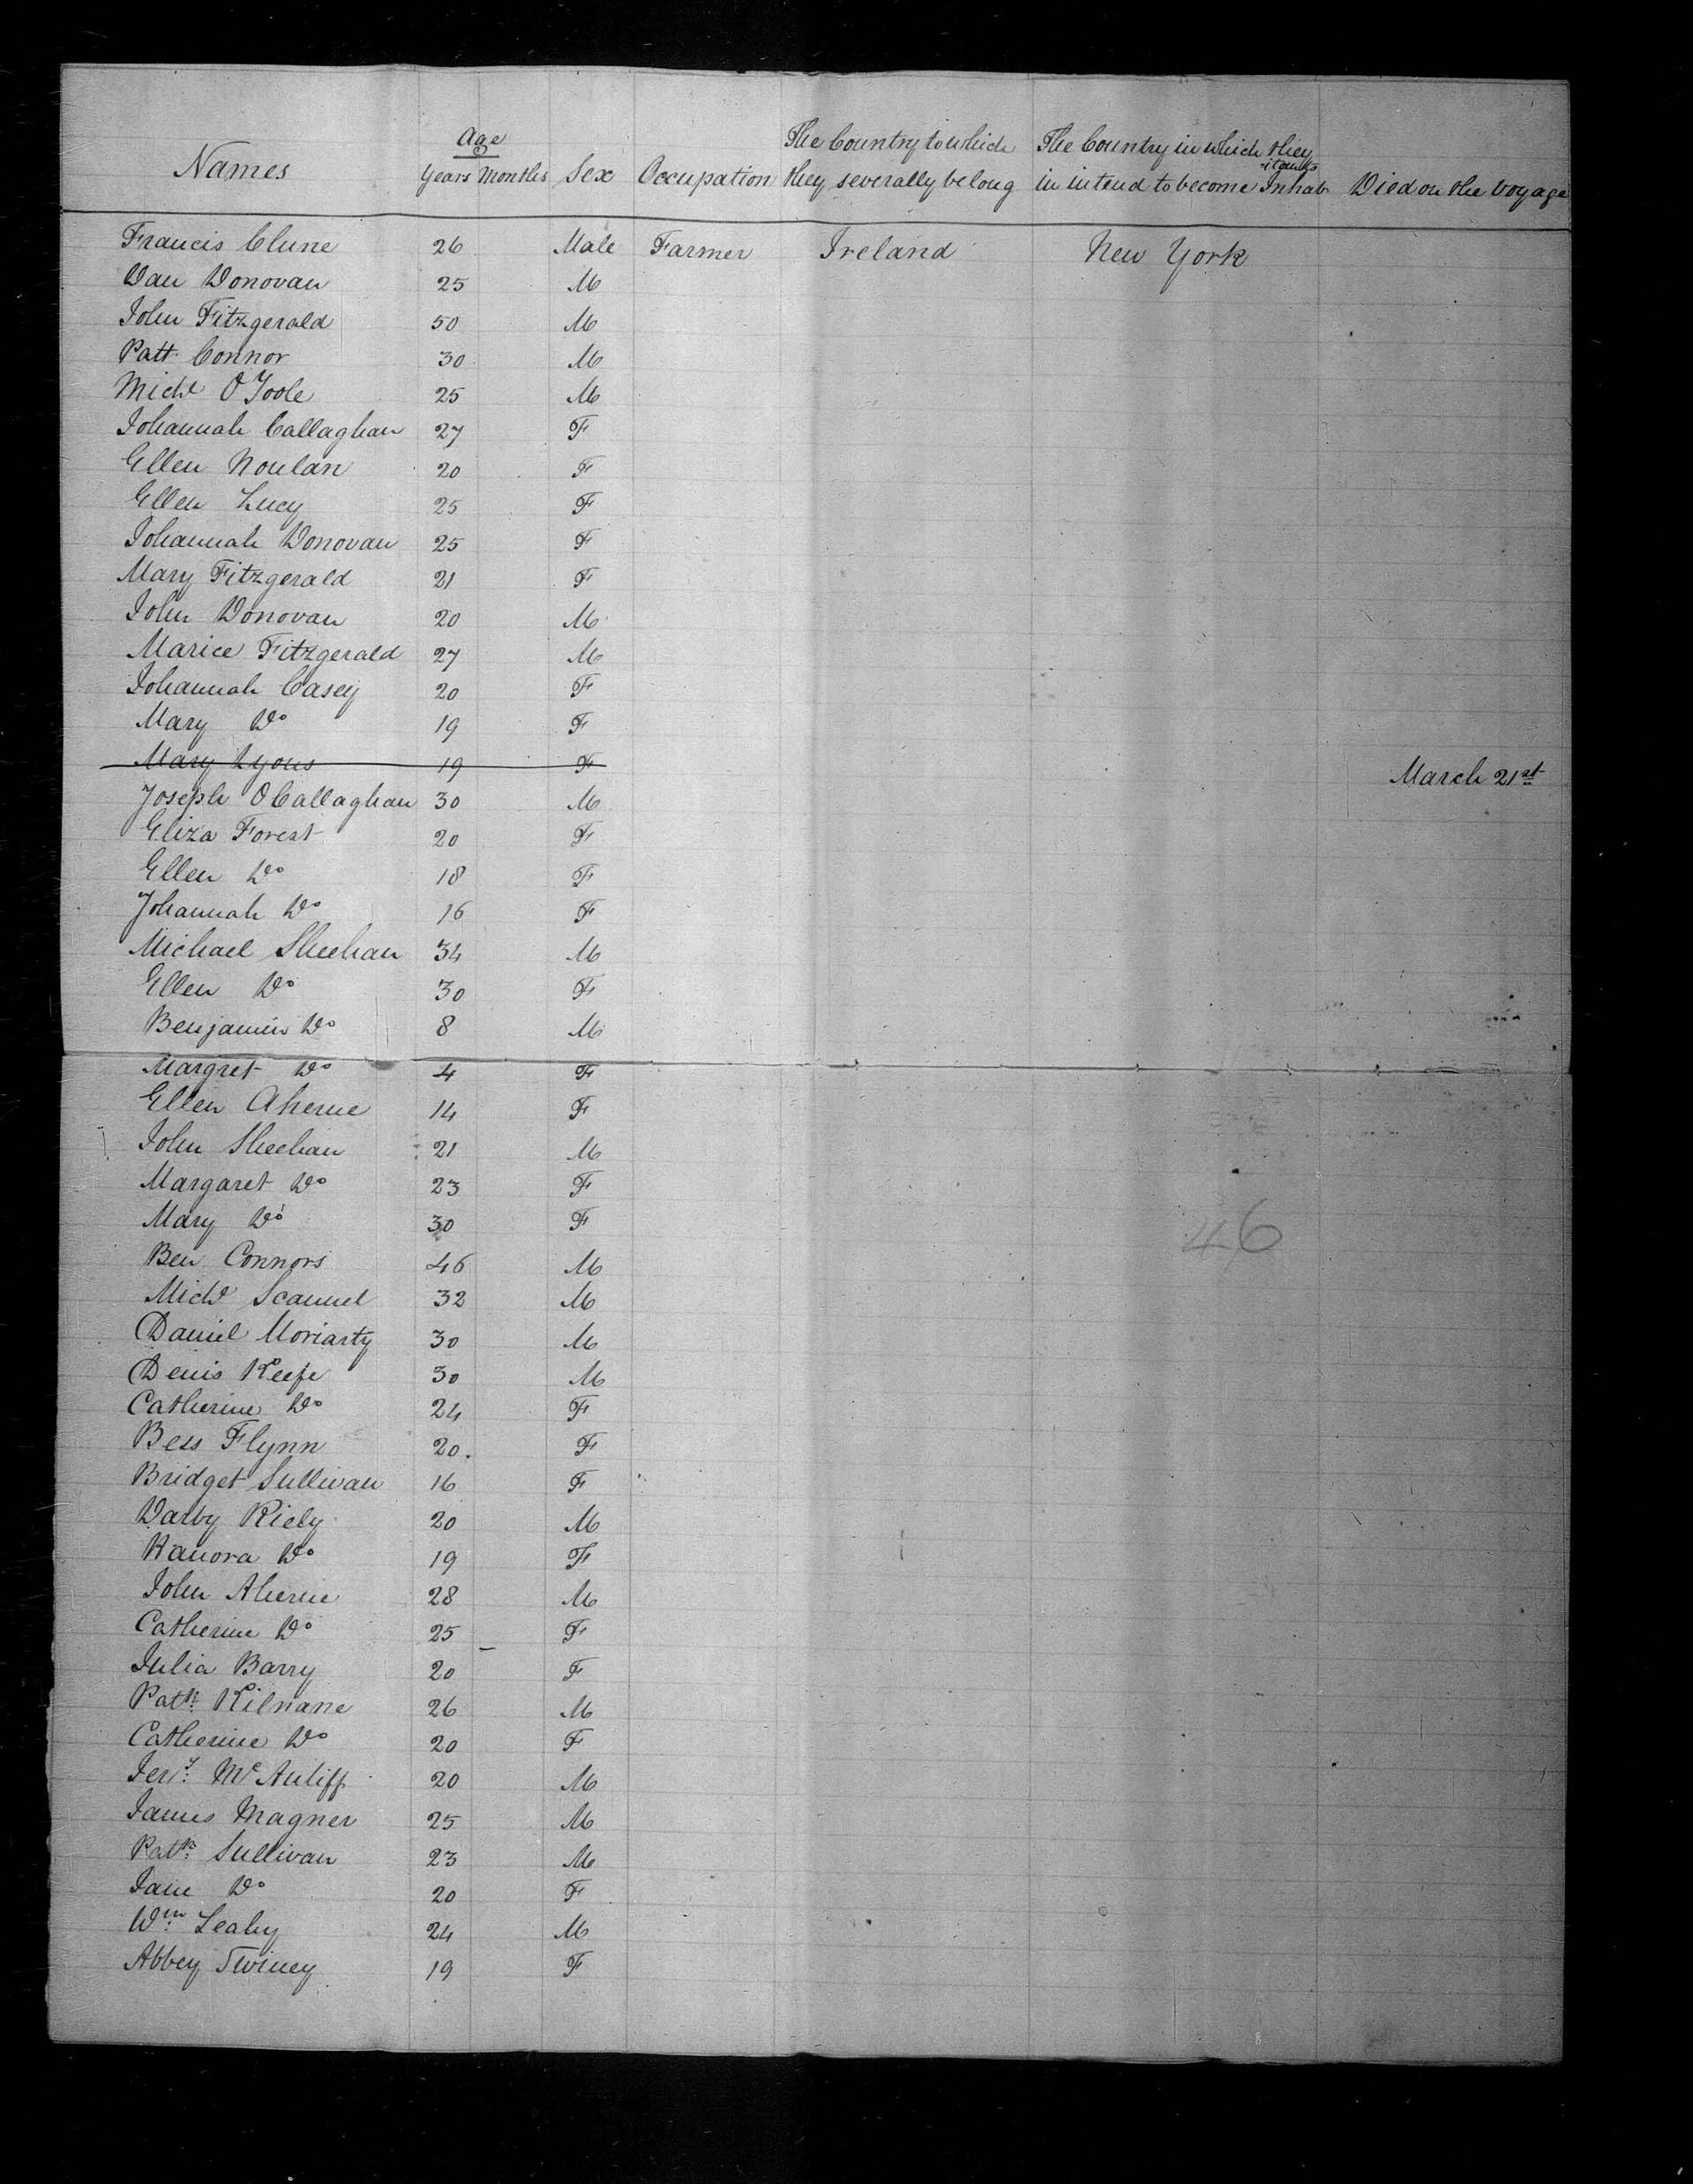 Names Age Years Months Sex Occupation The Country to which they severally belong The Country in which they in intend to become Inhabitants Died on the Voyage
Francis Clune 26 Male Farmer Ireland New York
Dan Donovan 25 M
John Fitzgerald 50 M
Patt Connor 30 M
Michl O Toole 25 M
Johannah Callaghan 27 F
Ellen Noulan 20 F
Ellen Lucy 25 F
Johannah Donovan 25 F
Mary Fitzgerald 21 F
John Donovan 20 M
Marice Fitzgerald 27 M
Johannah Casey 20 F
Mary Do 19 F
Mary Lyons 19 F March 21st
Joseph O Callaghan 30 M
Eliza Forest 20 F
Ellen Do 18 F
Johannah Do 16 F
Michael Sheehan 34 M
Ellen Do 30 F
Benjamin Do 8 M
Margret Do 4 F
Ellen Aherne 14 F
John Sheehan 21 M
Margaret Do 23 F
Mary Do 30 F
46
Ben Connors 46 M
Michl Scannel 32 M
Daniel Moriarty 30 M
Denis Keefe 30 M
Catherine Do 24 F
Bess Flynn 20. F
Bridget Sullivan 16 F
Darby Riely 20 M
Hanora Do 19 F
John Aherne 28 M
Catherine Do 25 F
Julia Barry 20 F
Patk Kilnane 26 M
Catherine Do 20 F
Jery Mc Auliff 20 M
James Magner 25 M
Patk Sullivan 23 M
Jane Do 20 F
Wm Leahy 24 M
Abbey Twiney 19 F